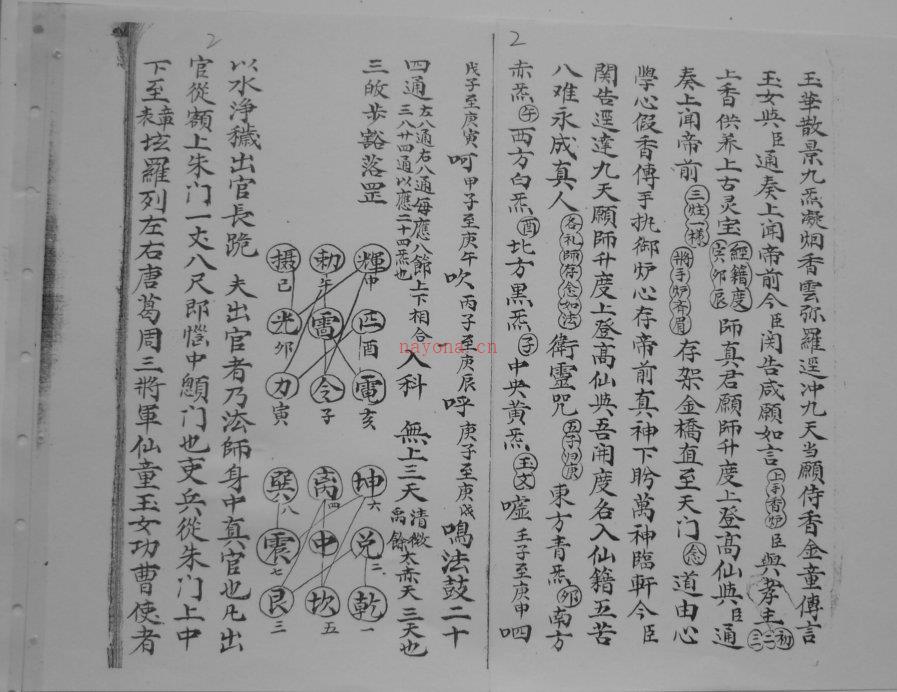 2
玉華散景九炁凝烟香雲弥羅逕冲九天当願侍香金童傳言
玉女與臣通奏上闻帝前今臣関告咸願如言上手香炉臣與孝主初二三
上香供养上古灵宝經籍度师真君願師升度上登高仙與臣通
奏上闻帝前三炷一樣將手炉齐眉存架金橋直至天门念道由心
學心假香傳手执御炉心存帝前真神下盼萬神臨軒今臣
関告逕達九天願師升度上登高仙與吾開度名入仙籍五苦
八难永成真人各礼師存念如法衛靈咒東方青炁卯南方
赤炁午西方白炁酉北方黑炁子中央黄炁玉文嘘壬子至庚申呬
2
戊子至庚寅呵甲子至庚午吹丙子至庚辰呼庚子至庚戌鳴法鼓二十
四通左八通右八通每應八節上下相合三八廿四通以應二十四炁也入科無上三天清微禹餘太赤天三天也
三皈步豁落罡
輝申 勅午 摄巳
匹酉 雷 光卯
電亥 令子 力寅
坤六 离四 巽八
兌二 中 震七
乾一 坎五 艮三
以水净穢出官長跪 夫出官者乃法師身中真官也凡出
官從額上朱门一丈八尺即惱中顖门也吏兵從朱门上中
下至章表坛羅列左右唐葛周三將軍仙童玉女功曹使者
nayona.cn